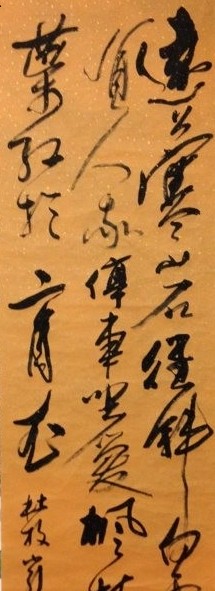 遠上寒山石徑斜白雲
有人家停車坐愛楓林
葉紅於二月花杜牧